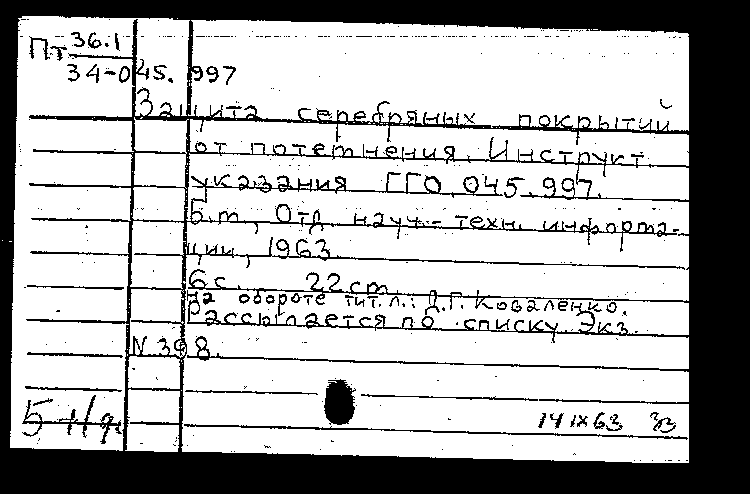 Пт 36.1
34-045.997
Защита серебряных покрытий
от потемнения. Инструкт.
указания ГГО.045.997.
Б.м., Отд. науч.-техн. информа-
ции, 1963.
6 с. 22 см.
На обороте тит. л.: Д.Г. Коваленко.
Рассылается по списку. Экз.
N 398.
14 IX 63